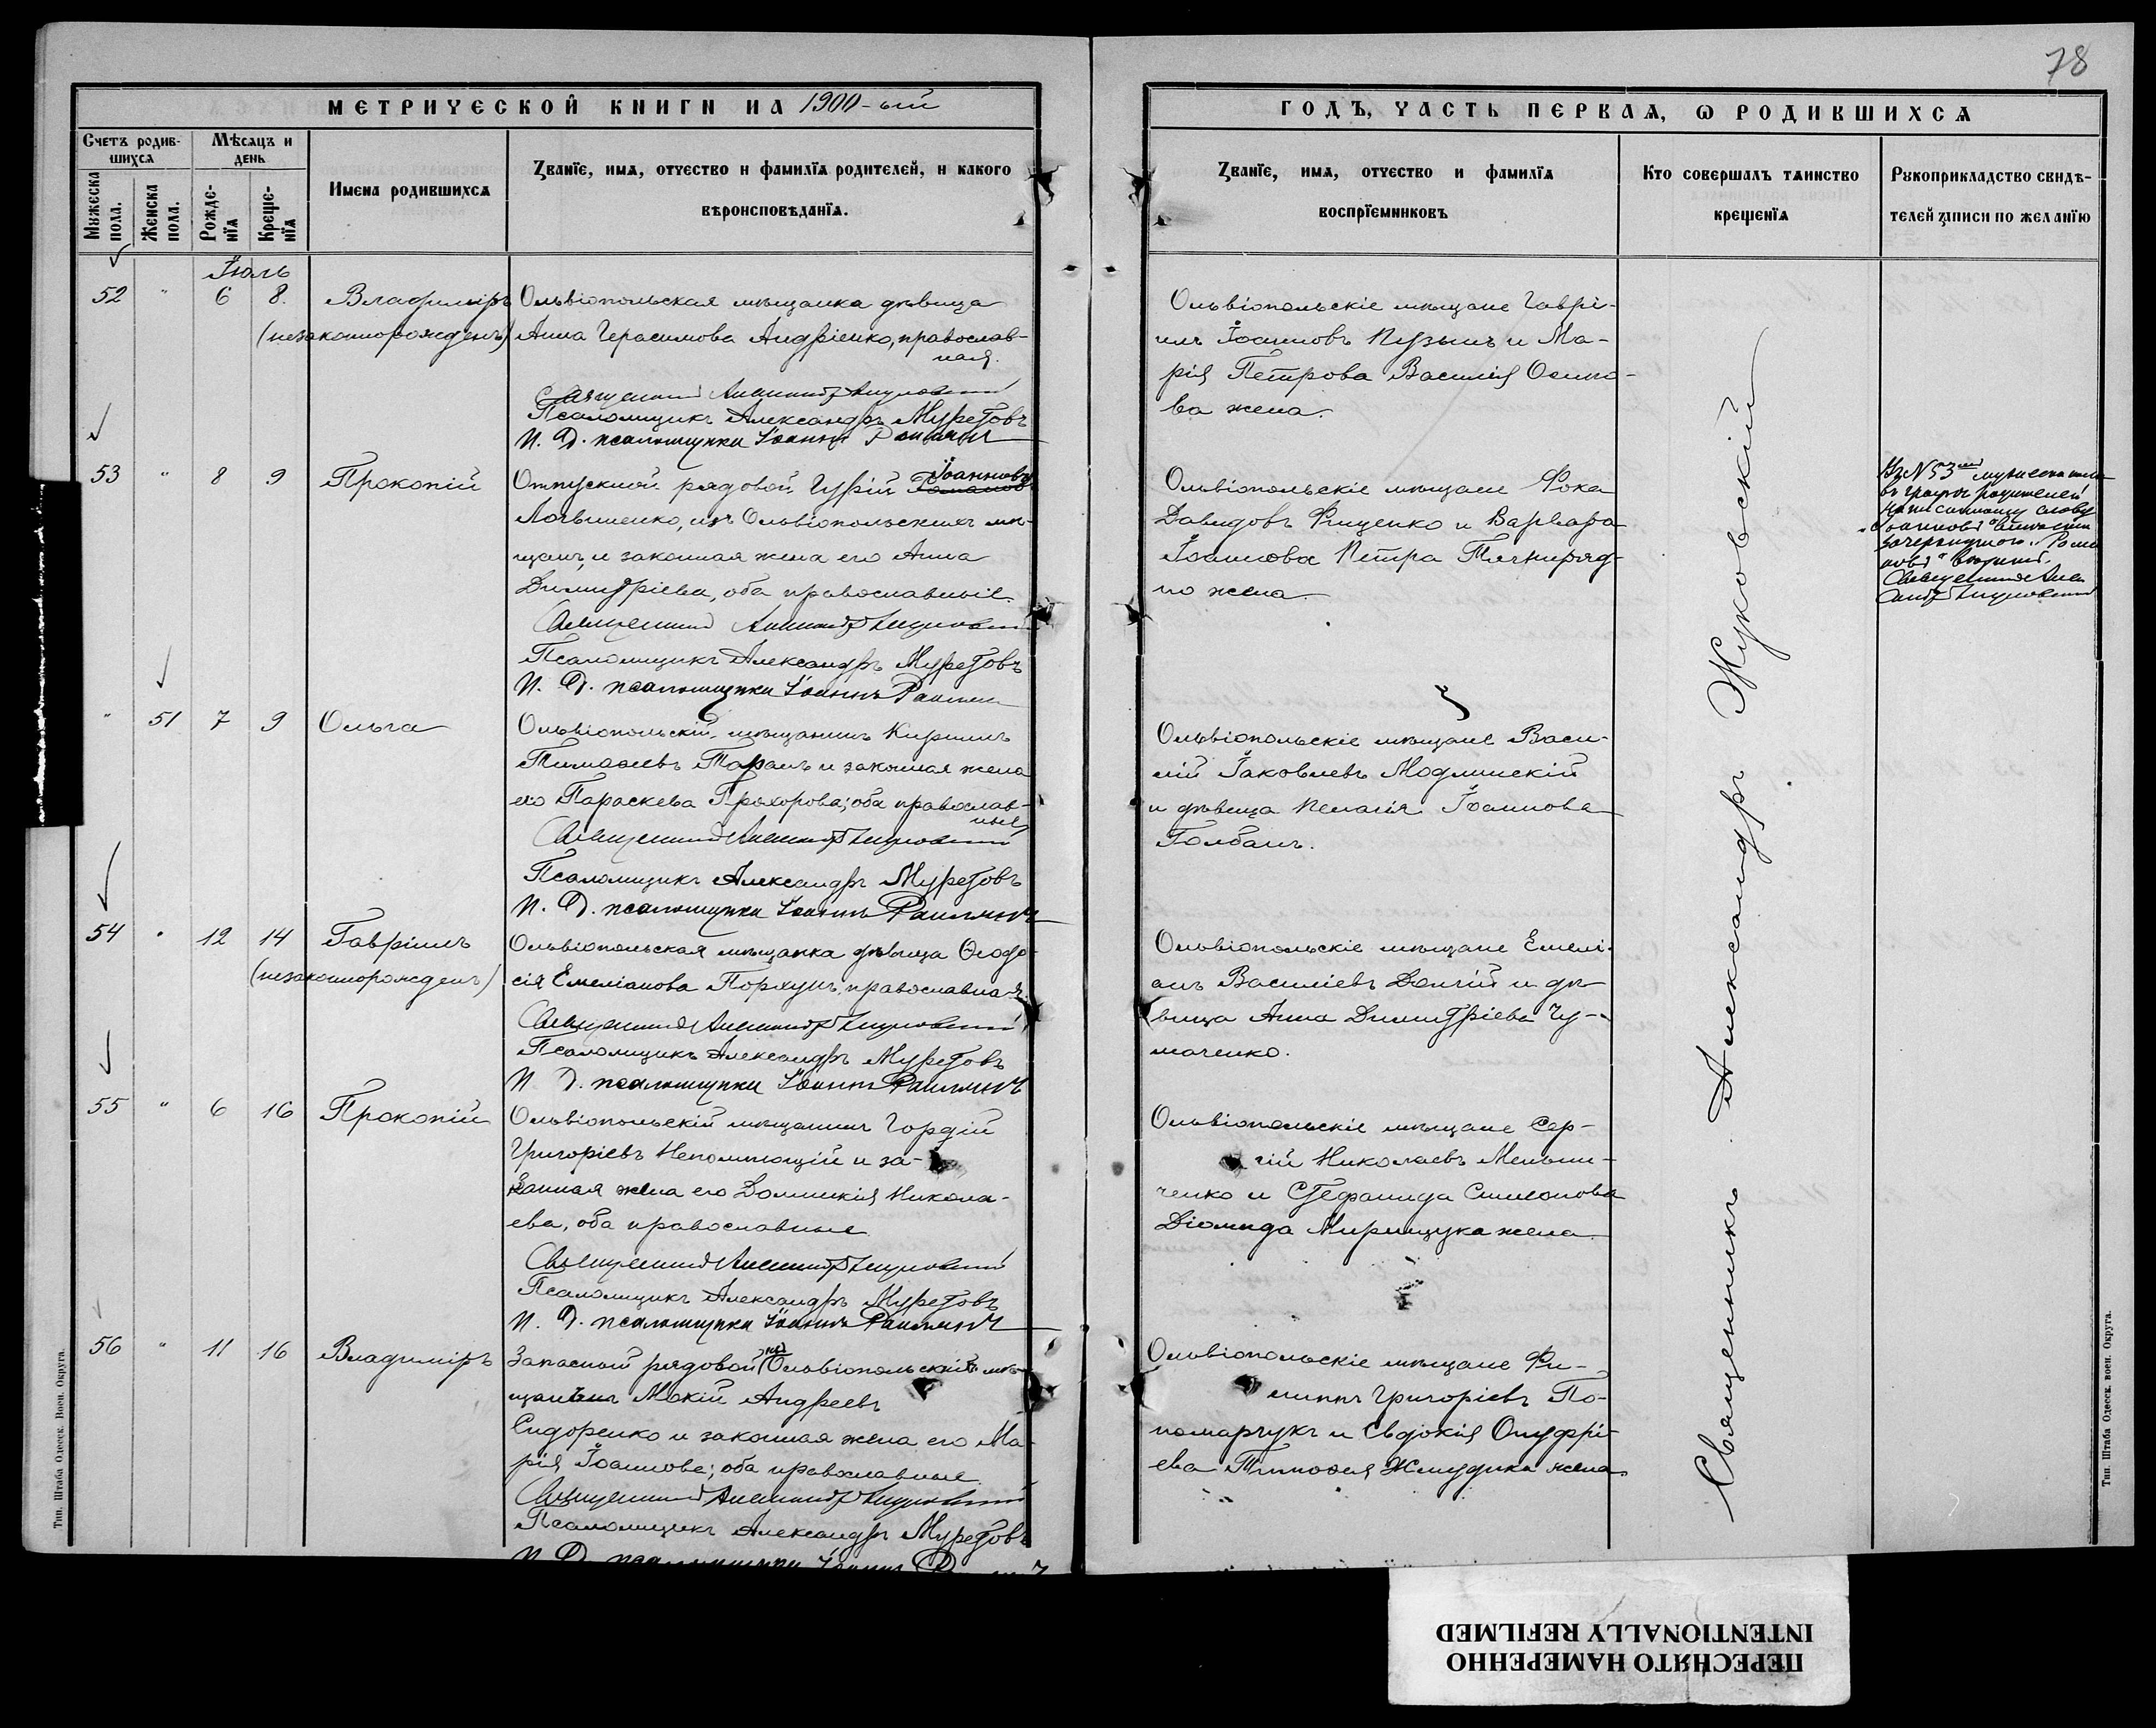 78
МЕТРИЧЕСКОЙ КНИГИ НА 1900-ый
ГОДЪ, ЧАСТЬ ПЕРВАЯ, Ѡ РОДИВШИХСЯ
Счетъ родив-
шихся
Мѣсяцъ и
день
Мужеска
пола.
Женска
пола.
Рожде-
нїя
Креще-
нїя
Имена родившихся
Званїе, имя, отчество и фамилїя родителей, и какого
вѣроисповѣданїя.
Званїе, имя, отчество и фамилїя
воспрїемниковъ
Кто совершалъ таинство
крещенїя
Рукоприкладство свидѣ-
телей записи по желанїю
Іюль
52 " 6 8. Владиміръ
(незаконнорожденъ)
Ольвіопольская мѣщанка дѣвица
Анна Герасимова Андріенко, православ-
ная.
Священникъ Александръ Жуковскій
Псаломщикъ Александръ Муретовъ
И. Д. псаломщика Іоаннъ
Ольвіопольскіе мѣщане Гаврі-
илъ Іоанновъ Пузынъ и Ма-
рія Петрова Василія Осипо-
ва жена.
53 " 8 9 Прокопій
Отпускной рядовой Гурій Романовъ Іоанновъ
Логвиненко, изъ Ольвіопольскихъ мѣ-
щанъ, и законная жена его Анна
Димитріева, оба православные.
Священникъ Александръ Жуковскій
Псаломщикъ Александръ Муретовъ
И. Д. псаломщика Іоаннъ
Ольвіопольскіе мѣщане Фока
Давидовъ Фищенко и Варвара
Іоаннова Петра Пятиряд-
но жена.
Въ № 53мъ мужеска пола
въ графѣ родителей
написанному слову
"Іоанновъ" вмѣсто
зачеркнутого "Рома
новъ" вѣрить.
Священникъ Алек
сандръ Жуковскій
" 51 7 9 Ольга
Ольвіопольскій мѣщанинъ Кириллъ
Тимоѳеевъ Таранъ и законная жена
его Параскева Прохорова; оба православ-
ные
Священникъ Александръ Жуковскій
Псаломщикъ Александръ Муретовъ
И. Д. псаломщика Іоаннъ
Ольвіопольскіе мѣщане Васи-
лій Іаковлевъ Модлинскій
и дѣвица Пелагія Іоаннова
Голбанъ.
54 " 12 14 Гавріилъ
(незаконнорожденъ)
Ольвіопольская мѣщанка дѣвица Ѳеодо-
сія Емеліанова Порхунъ, православная
Священникъ Александръ Жуковскій
Псаломщикъ Александръ Муретовъ
И. Д. псаломщика Іоаннъ
Ольвіопольскіе мѣщане Емелі-
анъ Василіевъ Долгій и дѣ-
вица Анна Димитріева Чу-
маченко.
55 " 6 16 Прокопій
Ольвіопольскій мѣщанинъ Гордій
Григоріевъ Непомнющій и за-
конная жена его Домникія Никола-
ева, оба православные
Священникъ Александръ Жуковскій
Псаломщикъ Александръ Муретовъ
И. Д. псаломщика Іоаннъ
Ольвіопольскіе мѣщане Сер-
гій Николаевъ Мельни-
ченко и Стефанида Симеонова
Діомида Мирищука жена.
56 " 11 16 Владиміръ
Запасный рядовой изъ Ольвіопольскихъ мѣ-
щанъ Мокій Андреевъ
Сидоренко и законная жена его Ма-
рія Іоаннова; оба православные
Священникъ Александръ Жуковскій
Псаломщикъ Александръ Муретовъ
И. Д. псаломщика Іоаннъ
Ольвіопольскіе мѣщане Фи-
липпъ Григоріевъ По-
номарчукъ и Евдокія Онуфрі-
ева Тимоѳея Жмудика жена.
Священникъ Александръ Жуковскій
Тип. Штаба Одесск. Воен. Округа.
Тип. Штаба Одесск. воен. Округа.
ПЕРЕСНЯТО НАМЕРЕННО
INTENTIONALLY REFILMED